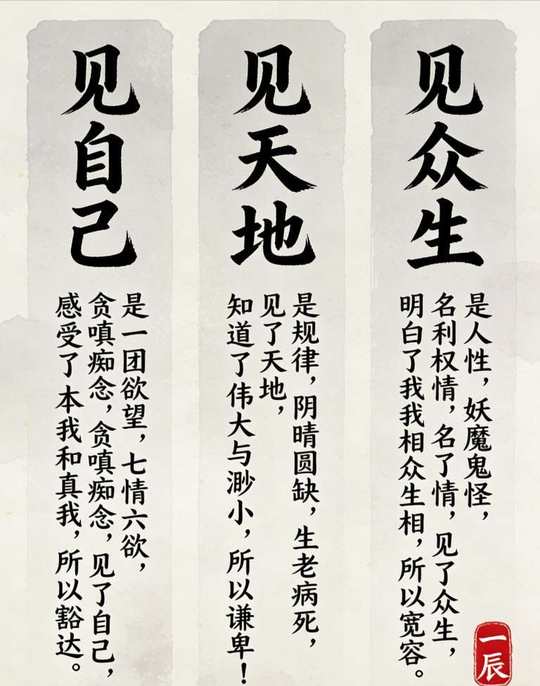 见自己
是一团欲望，七情六欲，
贪嗔痴念，贪嗔痴念，见了自己，
感受了本我和真我，所以豁达。
见天地
是规律，阴晴圆缺，生老病死，
见了天地，
知道了伟大与渺小，所以谦卑！
见众生
是人性，妖魔鬼怪，
名利权情，名了情，见了众生，
明白了我我相众生相，所以宽容。
一辰